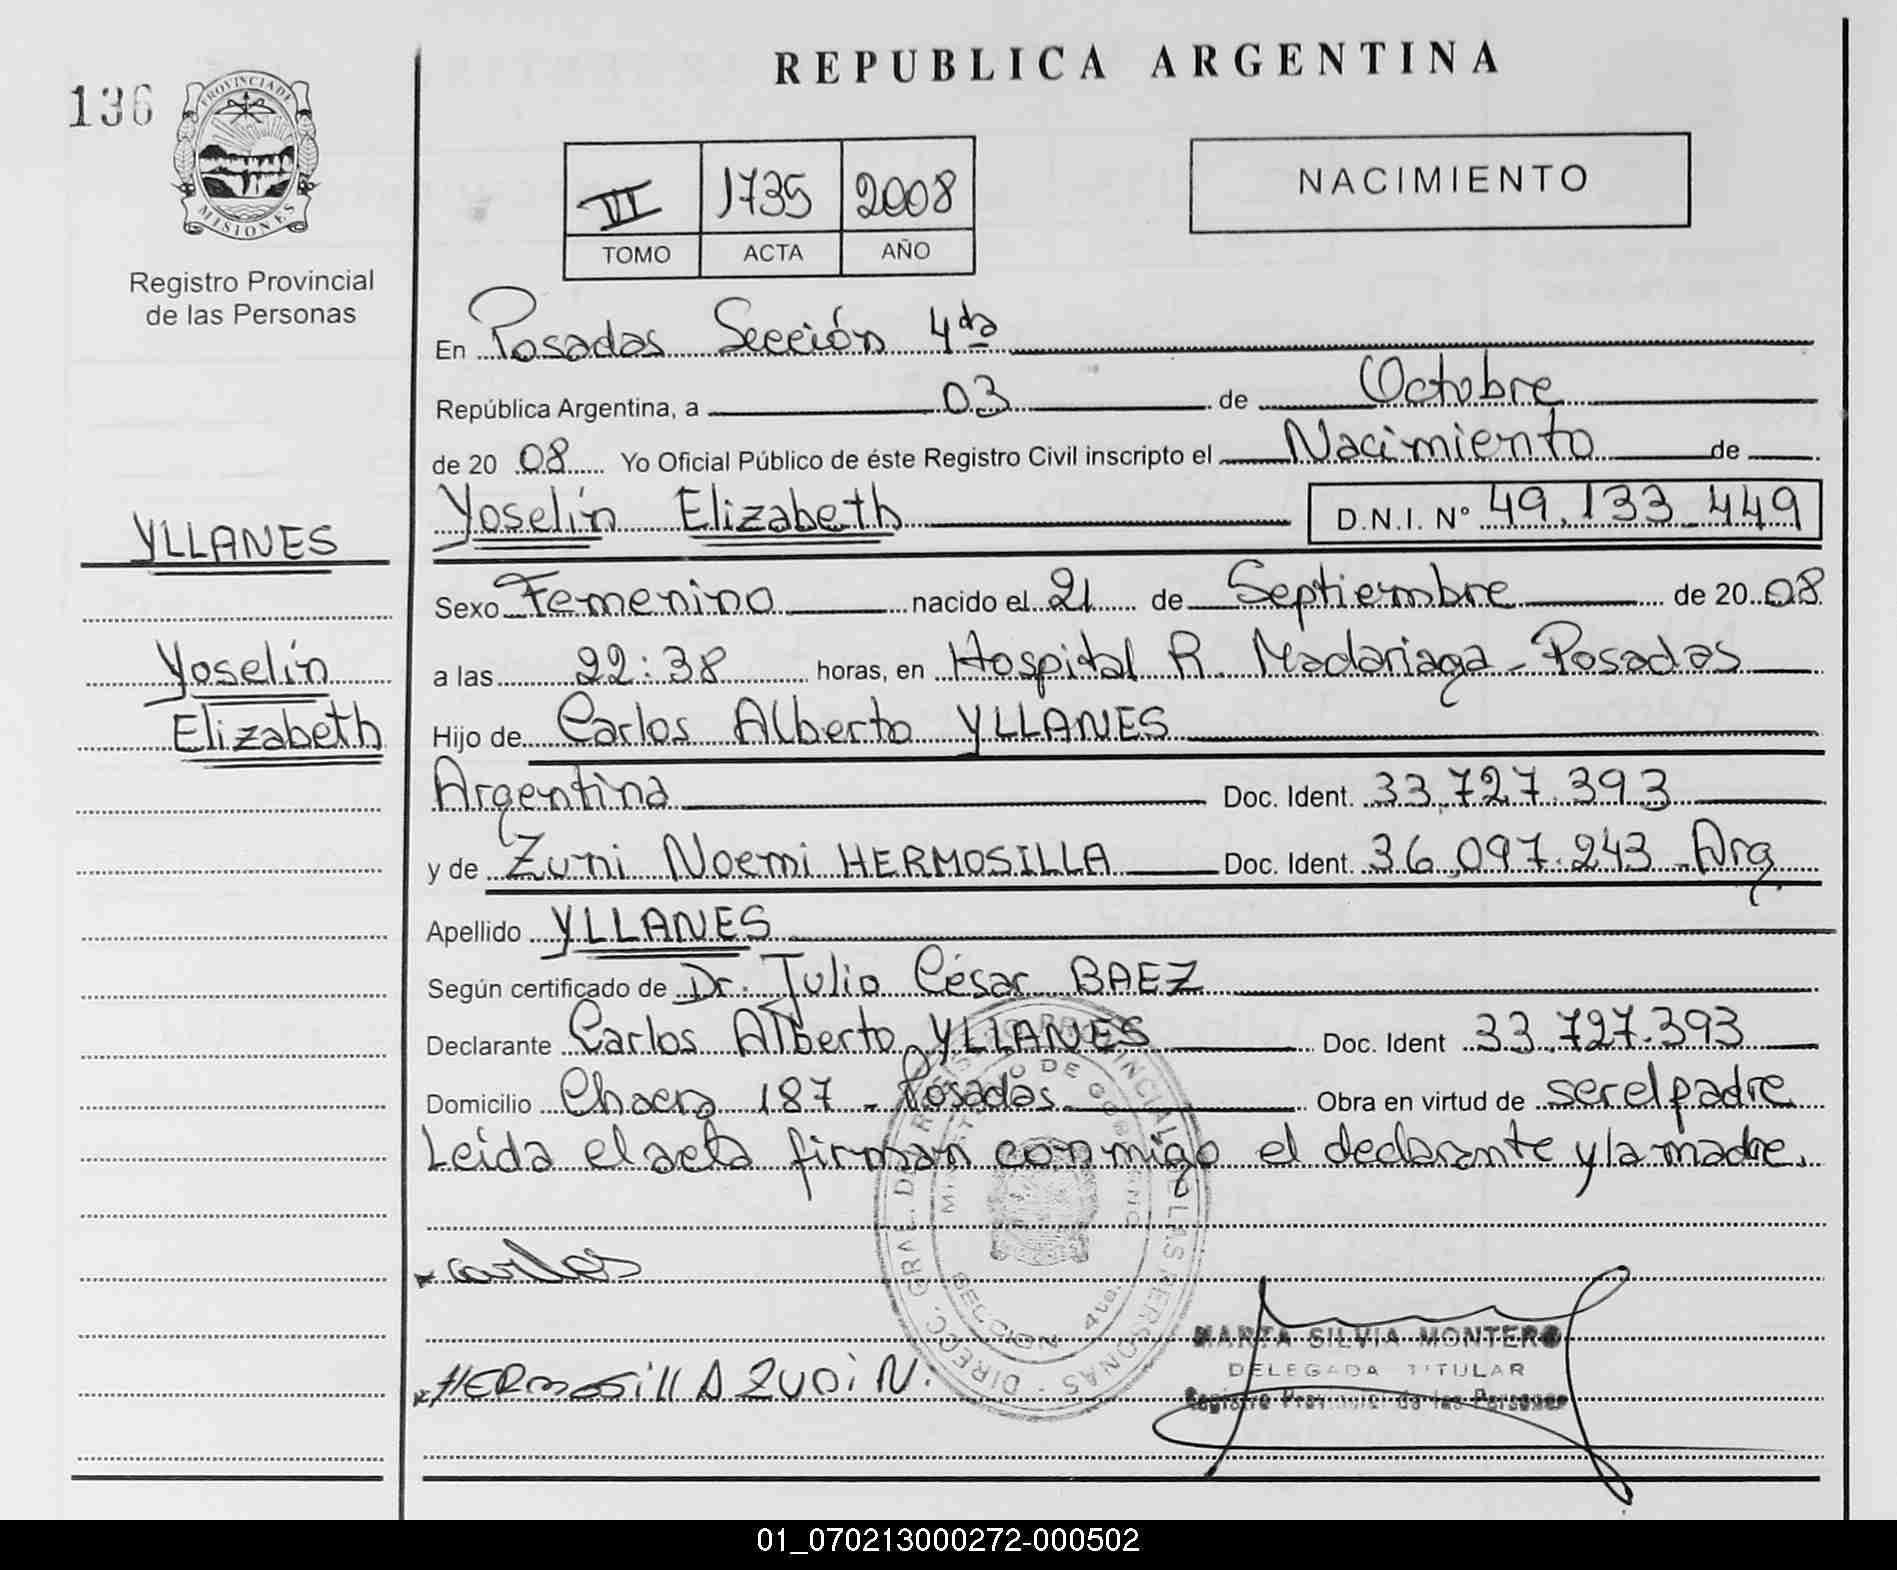 136
PROVINCIA DE
MISIONES
Registro Provincial
de las Personas
YLLANES
Yoselín
Elizabeth
REPUBLICA ARGENTINA
VI 1735 2008
TOMO ACTA AÑO
NACIMIENTO
En Posadas Sección 4da
República Argentina, a 03 de Octubre
de 20 08 Yo Oficial Público de éste Registro Civil inscripto el Nacimiento de
Yoselín Elizabeth D.N.I. N° 49.133.449
Sexo Femenino nacido el 21 de Septiembre de 20 08
a las 22:38 horas, en Hospital R. Madariaga - Posadas
Hijo de Carlos Alberto YLLANES
Argentina Doc. Ident. 33.727.393
y de Zuni Noemi HERMOSILLA Doc. Ident. 36.097.243 - Arg
Apellido YLLANES
Según certificado de Dr. Julio César BAEZ
Declarante Carlos Alberto YLLANES Doc. Ident 33.727.393
Domicilio Chacra 187 - Posadas Obra en virtud de ser el padre
Leída el acta firman conmigo el declarante y la madre.
carlos
HERmosillA ZUniN.
MARTA SILVIA MONTERO
DELEGADA TITULAR
Registro Provincial de las Personas
SECCION 4ta.
01_070213000272-000502